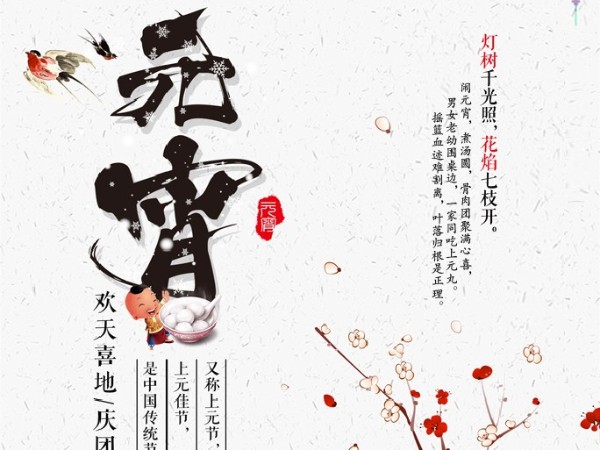 元宵
元宵
灯树千光照，花焰七枝开。
闹元宵，煮汤圆，骨肉团聚满心喜，
男女老幼围桌边，一家同吃上元丸。
摇篮血迹难割离，叶落归根是正理。
欢天喜地/庆团
又称上元节，
上元佳节，
是中国传统节